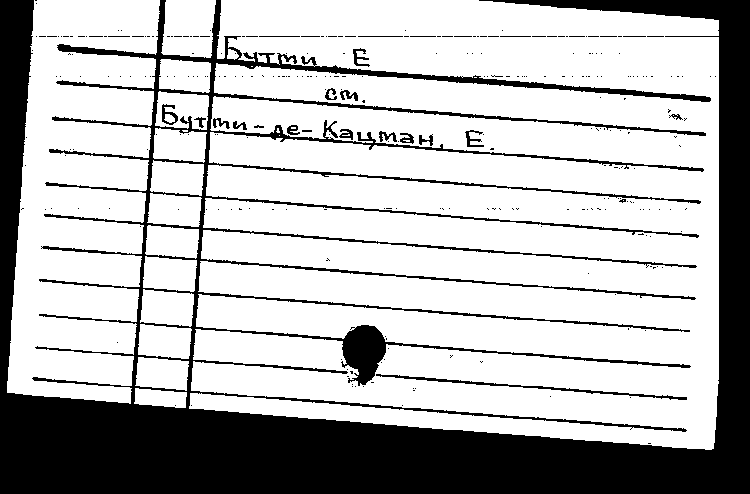 Бутми, Е
см.
Бутми-де-Кацман, Е.